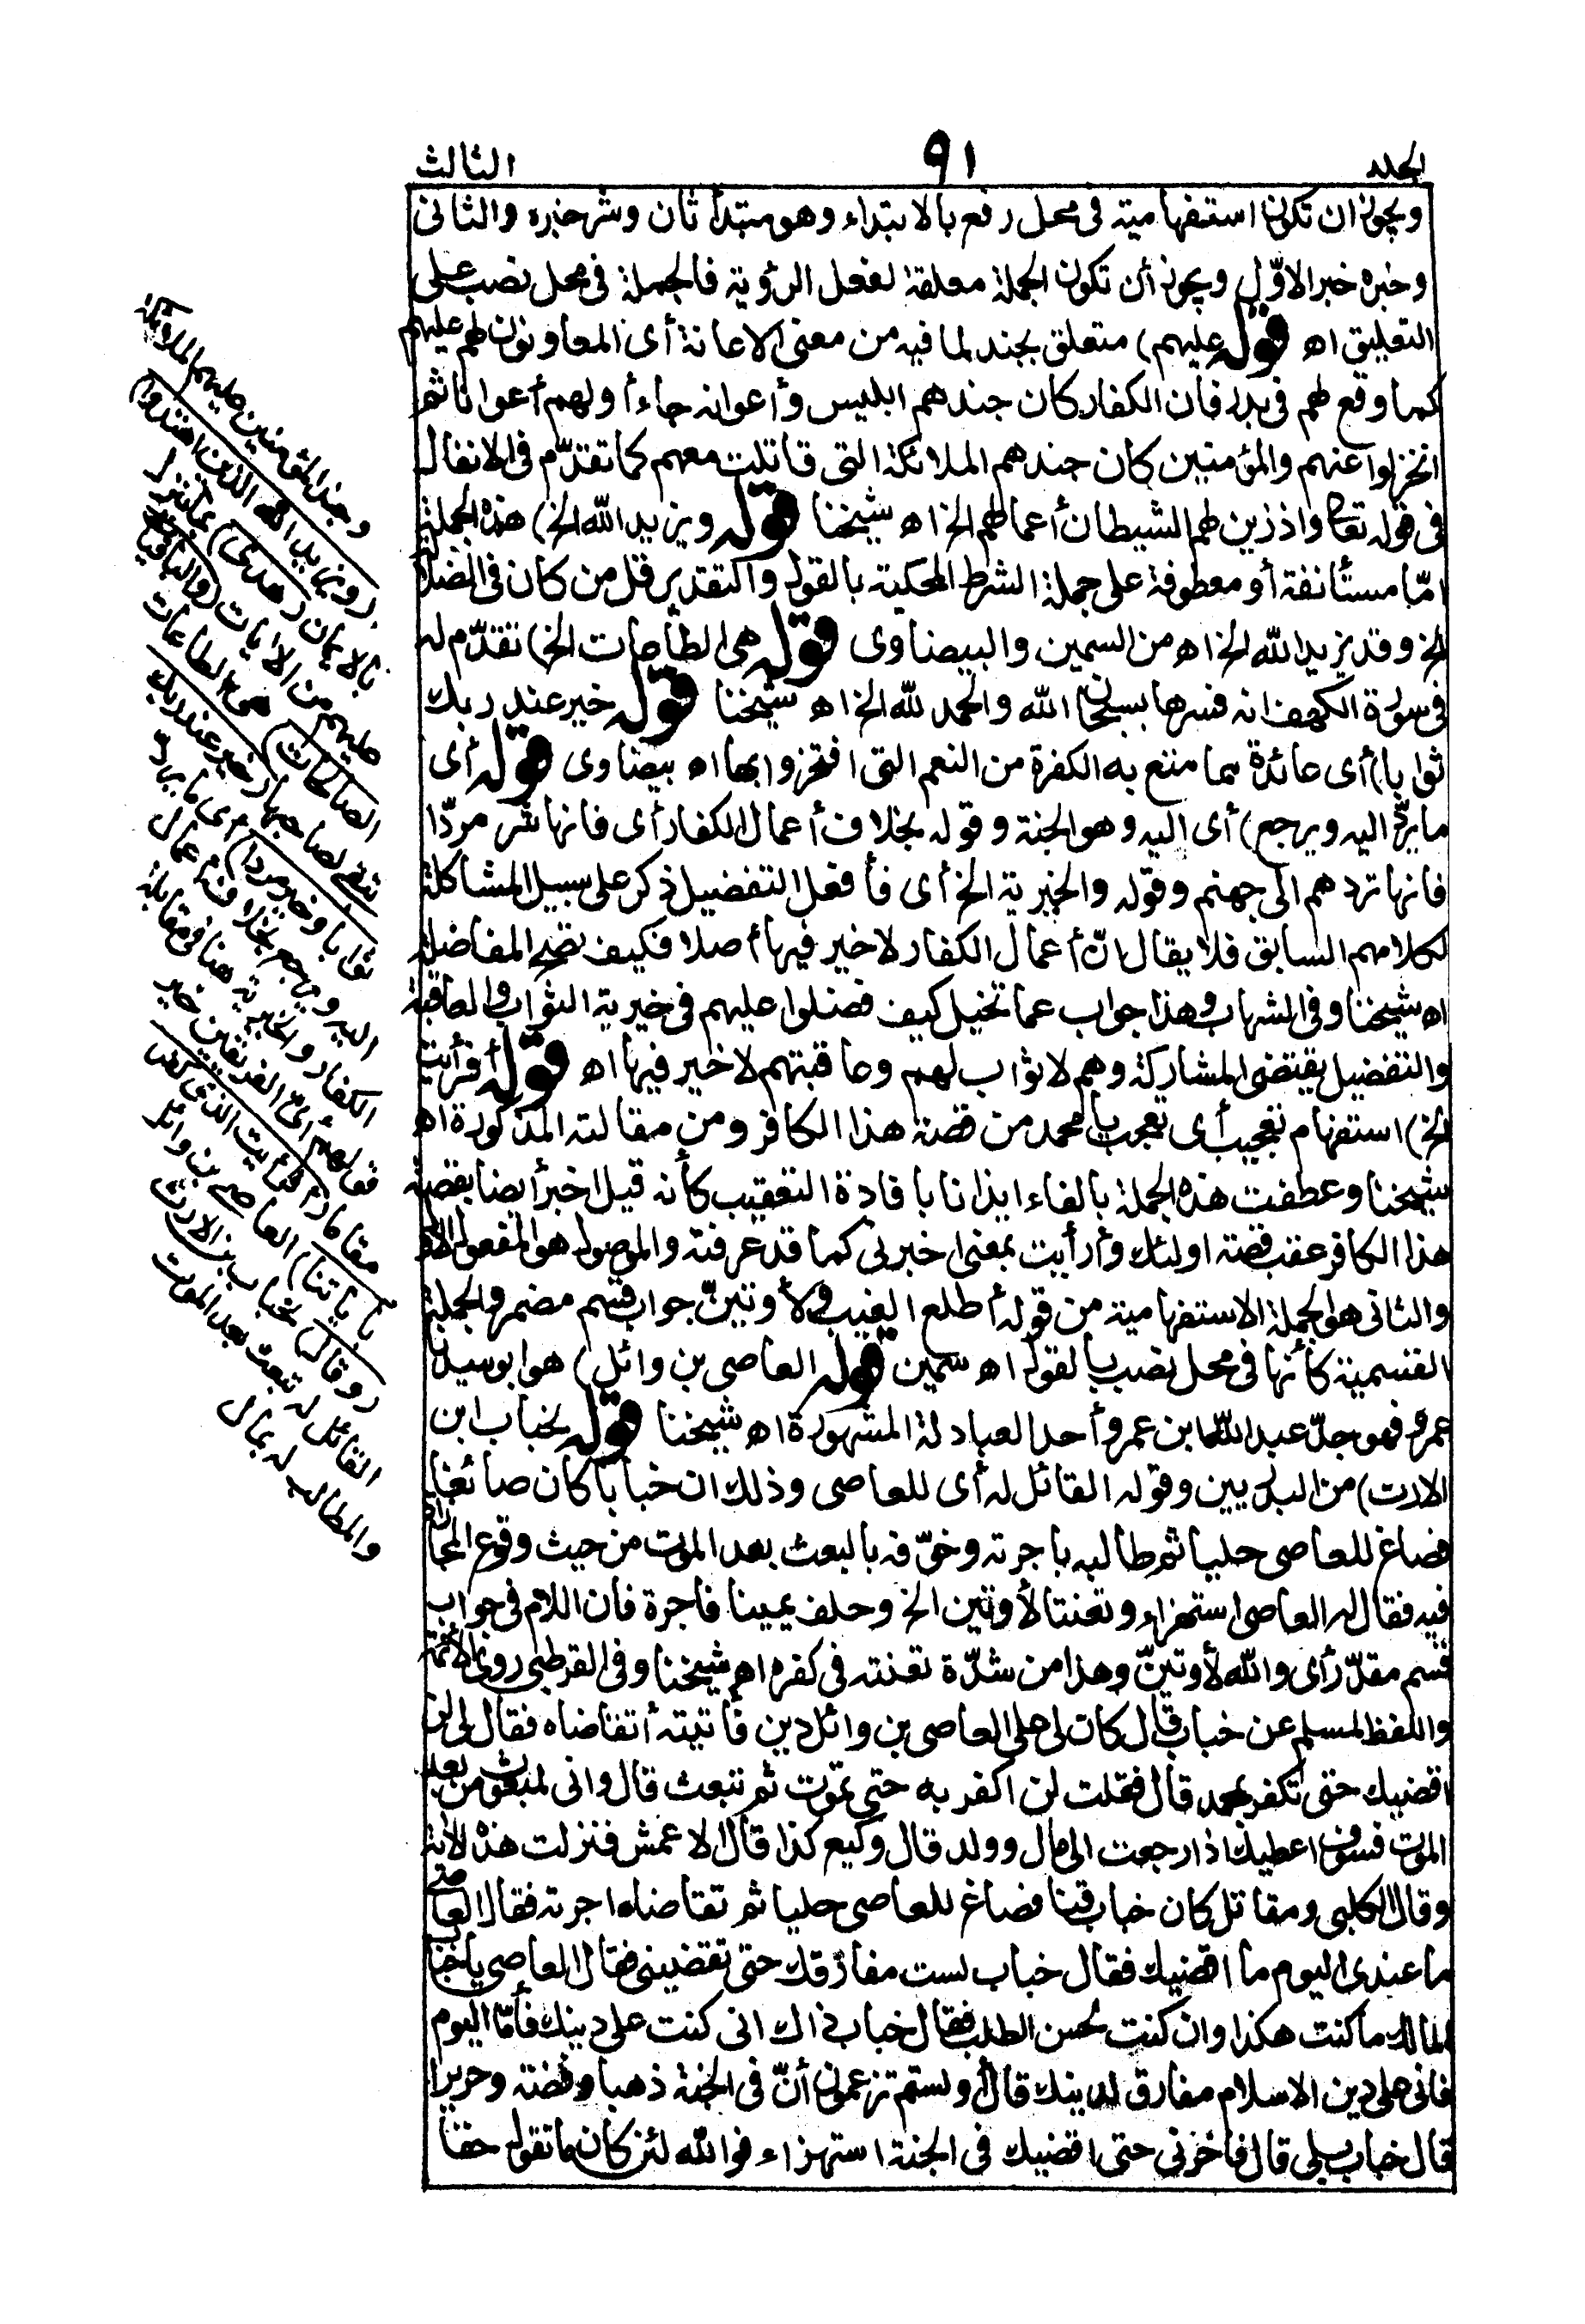 المجلد
٩١
الثالث
ويجوز ان تكون استفهامية فى محل رفع بالابتداء وهو مبتدأ ثان وشر خبره والثانى
وخبره خبر الاوّل ويجوز أن تكون الجملة معلقة لفعل الرؤية فالجملة فى محل نصب على
التعليق اه قوله عليهم) متعلق بجند لما فيه من معنى الاعانة أى المعاونون لهم عليهم
كما وقع لهم فى بدر فان الكفار كان جندهم ابليس وأعوانه جاءأ ولهم أعوانا ثم
انخزلوا عنهم والمؤمنين كان جندهم الملائكة التى قاتلت معهم كما تقدّم فى الانفال
فى قوله تعا واذ زين لهم الشيطان أعمالهم الخ اه شيخنا قوله ويزيد الله الخ) هذه الجملة
امّا مستأنفة أو معطوفة على جملة الشرط المحكية بالقول والتقدير قل من كان فى الضلالة
الخ وقد يزيد الله الخ اه من السمين والبيضاوى قوله هى الطاعات الخ) تقدّم له
فى سورة الكهف انه فسرها بسبحان الله والحمد لله الخ اه شيخنا قوله خير عند ربك
ثوابا) أى عائدة مما متع به الكفرة من النعم التى افتخروا بها اه بيضاوى قوله أى
ما يردّ اليه ويرجع) أى اليه وهو الجنة وقوله بخلاف أعمال الكفار أى فانها شر مردّا
فانها تردهم الى جهنم وقوله والخيرية الخ أى فأفعل التفضيل ذكر على سبيل المشاكلة
لكلامهم السابق فلا يقال انّ أعمال الكفار لا خير فيها أصلا فكيف تصح المفاضلة
اه شيخنا وفى الشهاب وهذا جواب عما تخيل كيف فضلوا عليهم فى خيرية الثواب والعاقبة
والتفضيل يقتضى المشاركة وهم لا ثواب لهم وعاقبتهم لا خير فيها اه قوله أفرأيت
الخ) استفهام تعجيب أى تعجب يا محمد من قصة هذا الكافر ومن مقالته المذكورة اه
شيخنا وعطفت هذه الجملة بالفاء ايذانا بافادة التعقيب كأنه قيل اخبر أيضا بقصة
هذا الكافر عقب قصة اولئك وأرأيت بمعنى اخبرنى كما قد عرفته والموصول هو المفعول الاول
والثانى هو الجملة الاستفهامية من قوله أطلع الغيب ولأوتينّ جواب قسم مضمر والجملة
القسمية كأنها فى محل نصب بالقول اه سمين قوله العاصى بن وائل) هو ابو سيدنا
عمرو فهو جدّ عبد الله ابن عمرو أحد العبادلة المشهورة اه شيخنا قوله لخباب ابن
الارت) من البدريين وقوله القائل له أى للعاصى وذلك ان خبابا كان صائغا
فصاغ للعاصى حليا ثم طالبه باجرته وخوّفه بالبعث بعد الموت من حيث وقوع المجازاة
فيه فقال له العاصى استهزاء وتعنتا لأوتين الخ وحلف يمينا فاجرة فان اللام فى جواب
قسم مقدّر أى والله لأوتينّ وهذا من شدّة تعنته فى كفره اه شيخنا وفى القرطبى روى الائمة
واللفظ لمسلم عن خباب قال كان لى على العاصى بن وائل دين فأتيته أتقاضاه فقال لى لن
اقضيك حتى تكفر بمحمد قال فقلت لن اكفر به حتى تموت ثم تبعث قال وانى لمبعوث من بعد
الموت فسوف اعطيك اذا رجعت الى مال وولد قال وكيع كذا قال الاعمش فنزلت هذه الآية
وقال الكلبى ومقاتل كان خباب قينا فصاغ للعاصى حليا ثم تقاضاه اجرته فقال العاصى
ما عندى اليوم ما اقضيك فقال خباب لست مفارقك حتى تقضينى فقال العاصى يا خباب
مالك ما كنت هكذا وان كنت لحسن الطلب فقال خباب ذاك انى كنت على دينك فأمّا اليوم
فانى على دين الاسلام مفارق لدينك قال أولستم تزعمون أنّ فى الجنة ذهبا وفضة وحريرا
قال خباب بلى قال فأخرنى حتى اقضيك فى الجنة استهزاء فوالله لئن كان ما تقول حقا
وجند المؤمنين عليهم الملائكة
(ويزيد الله الذين اهتدوا)
بالايمان (هدى) بما ينزل
عليهم من الايات (والباقيات
الصالحات) هى الطاعات
تبقى لصاحبها (خير عند ربك
ثوابا وخير مردا) اى ما يرد
اليه ويرجع بخلاف اعمال
الكفار والخيرية هنا فى مقابلة
قولهم اىّ الفريقين خير
مقاما (أفرأيت الذى كفر
بأياتنا) العاصى بن وائل
(وقال) لخباب بن الارت
القائل له تبعث بعد الموت
والمطالب له بمال